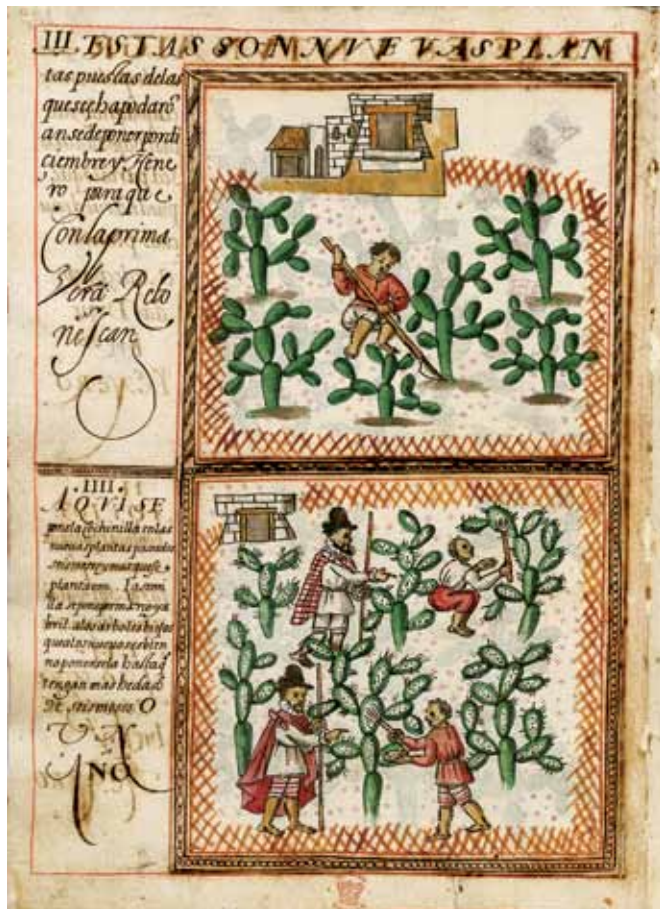 III. ESTAS SON NVEVAS PLAN
tas puestas de las
que se ha podarō
an se de poner por di
ciembre y Hene
ro para que
Con la prima
Vera Reto
nescan
.IIII.
AQVI SE
pone la cochinilla en las
nuevas plantas pasados
seis meses y mas que se
plantaron. la semi
lla se pone por março y a
bril. a los arboles biejos
que a los nuevos es bien
no ponersela hasta q̄
tengan mas hedad
De seis meses O
VN
AÑO